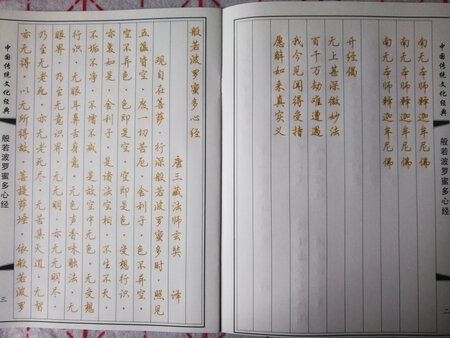 中国传统文化经典
般若波罗蜜多心经
二
南无本师释迦牟尼佛
南无本师释迦牟尼佛
南无本师释迦牟尼佛
开经偈
无上甚深微妙法
百千万劫难遭遇
我今见闻得受持
愿解如来真实义
般若波罗蜜多心经
唐三藏法师玄奘 译
观自在菩萨·行深般若波罗蜜多时·照见
五蕴皆空·度一切苦厄·舍利子·色不异空·
空不异色·色即是空·空即是色·受想行识·
亦复如是·舍利子·是诸法空相·不生不灭·
不垢不净·不增不减·是故空中无色·无受想
行识·无眼耳鼻舌身意·无色声香味触法·无
眼界·乃至无意识界·无无明·亦无无明尽·
乃至无老死·亦无老死尽·无苦集灭道·无智
亦无得·以无所得故·菩提萨埵·依般若波罗
中国传统文化经典
般若波罗蜜多心经
三